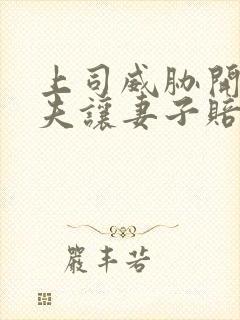 上司威胁開
夫讓妻子賠
嚴丰若